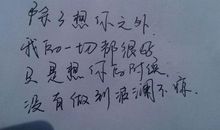 除了想你之外,
我的一切都很好
只是想你的时候,
没有做到波澜不惊.